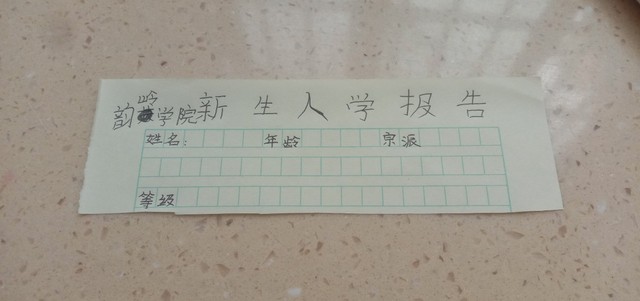 韵岭学院新生入学报告
姓名： 年龄 宗派
等级